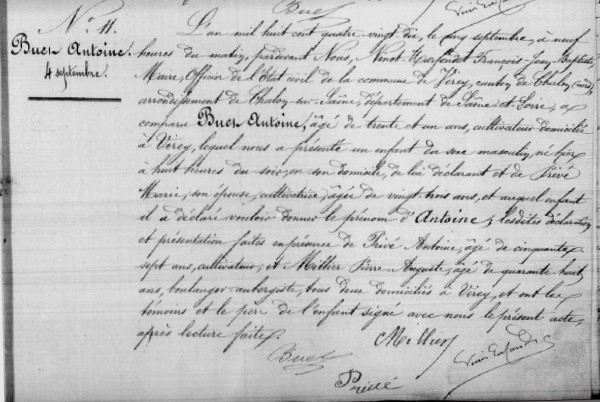 N° 11.
Buez Antoine.
4 septembre.
L'an mil huit cent quatre-vingt-dix, le cinq septembre, à neuf
heures du matin, pardevant Nous, François-Jean-Baptiste,
Maire, Officier de l'Etat civil de la commune de Virey, canton de Chalon (nord),
arrondissement de Chalon-sur-Saône, département de Saône-et-Loire, a
comparu Buez Antoine, âgé de trente et un ans, cultivateur domicilié
à Virey, lequel nous a présenté un enfant du sexe masculin, né hier
à huit heures du soir, en son domicile, de lui déclarant et de Privé
Marie, son épouse, cultivatrice, âgée de vingt-trois ans, et auquel enfant
il a déclaré vouloir donner le prénom d'Antoine; lesdites déclaration
et présentation faites en présence de Privé Antoine, âgé de cinquante
sept ans, cultivateur, et Millier Pierre-Auguste, âgé de quarante huit
ans, boulanger-aubergiste, tous deux domiciliés à Virey, et ont les
témoins et le père de l'enfant signé avec nous le présent acte,
après lecture faite.
Millier
Buez
Privé